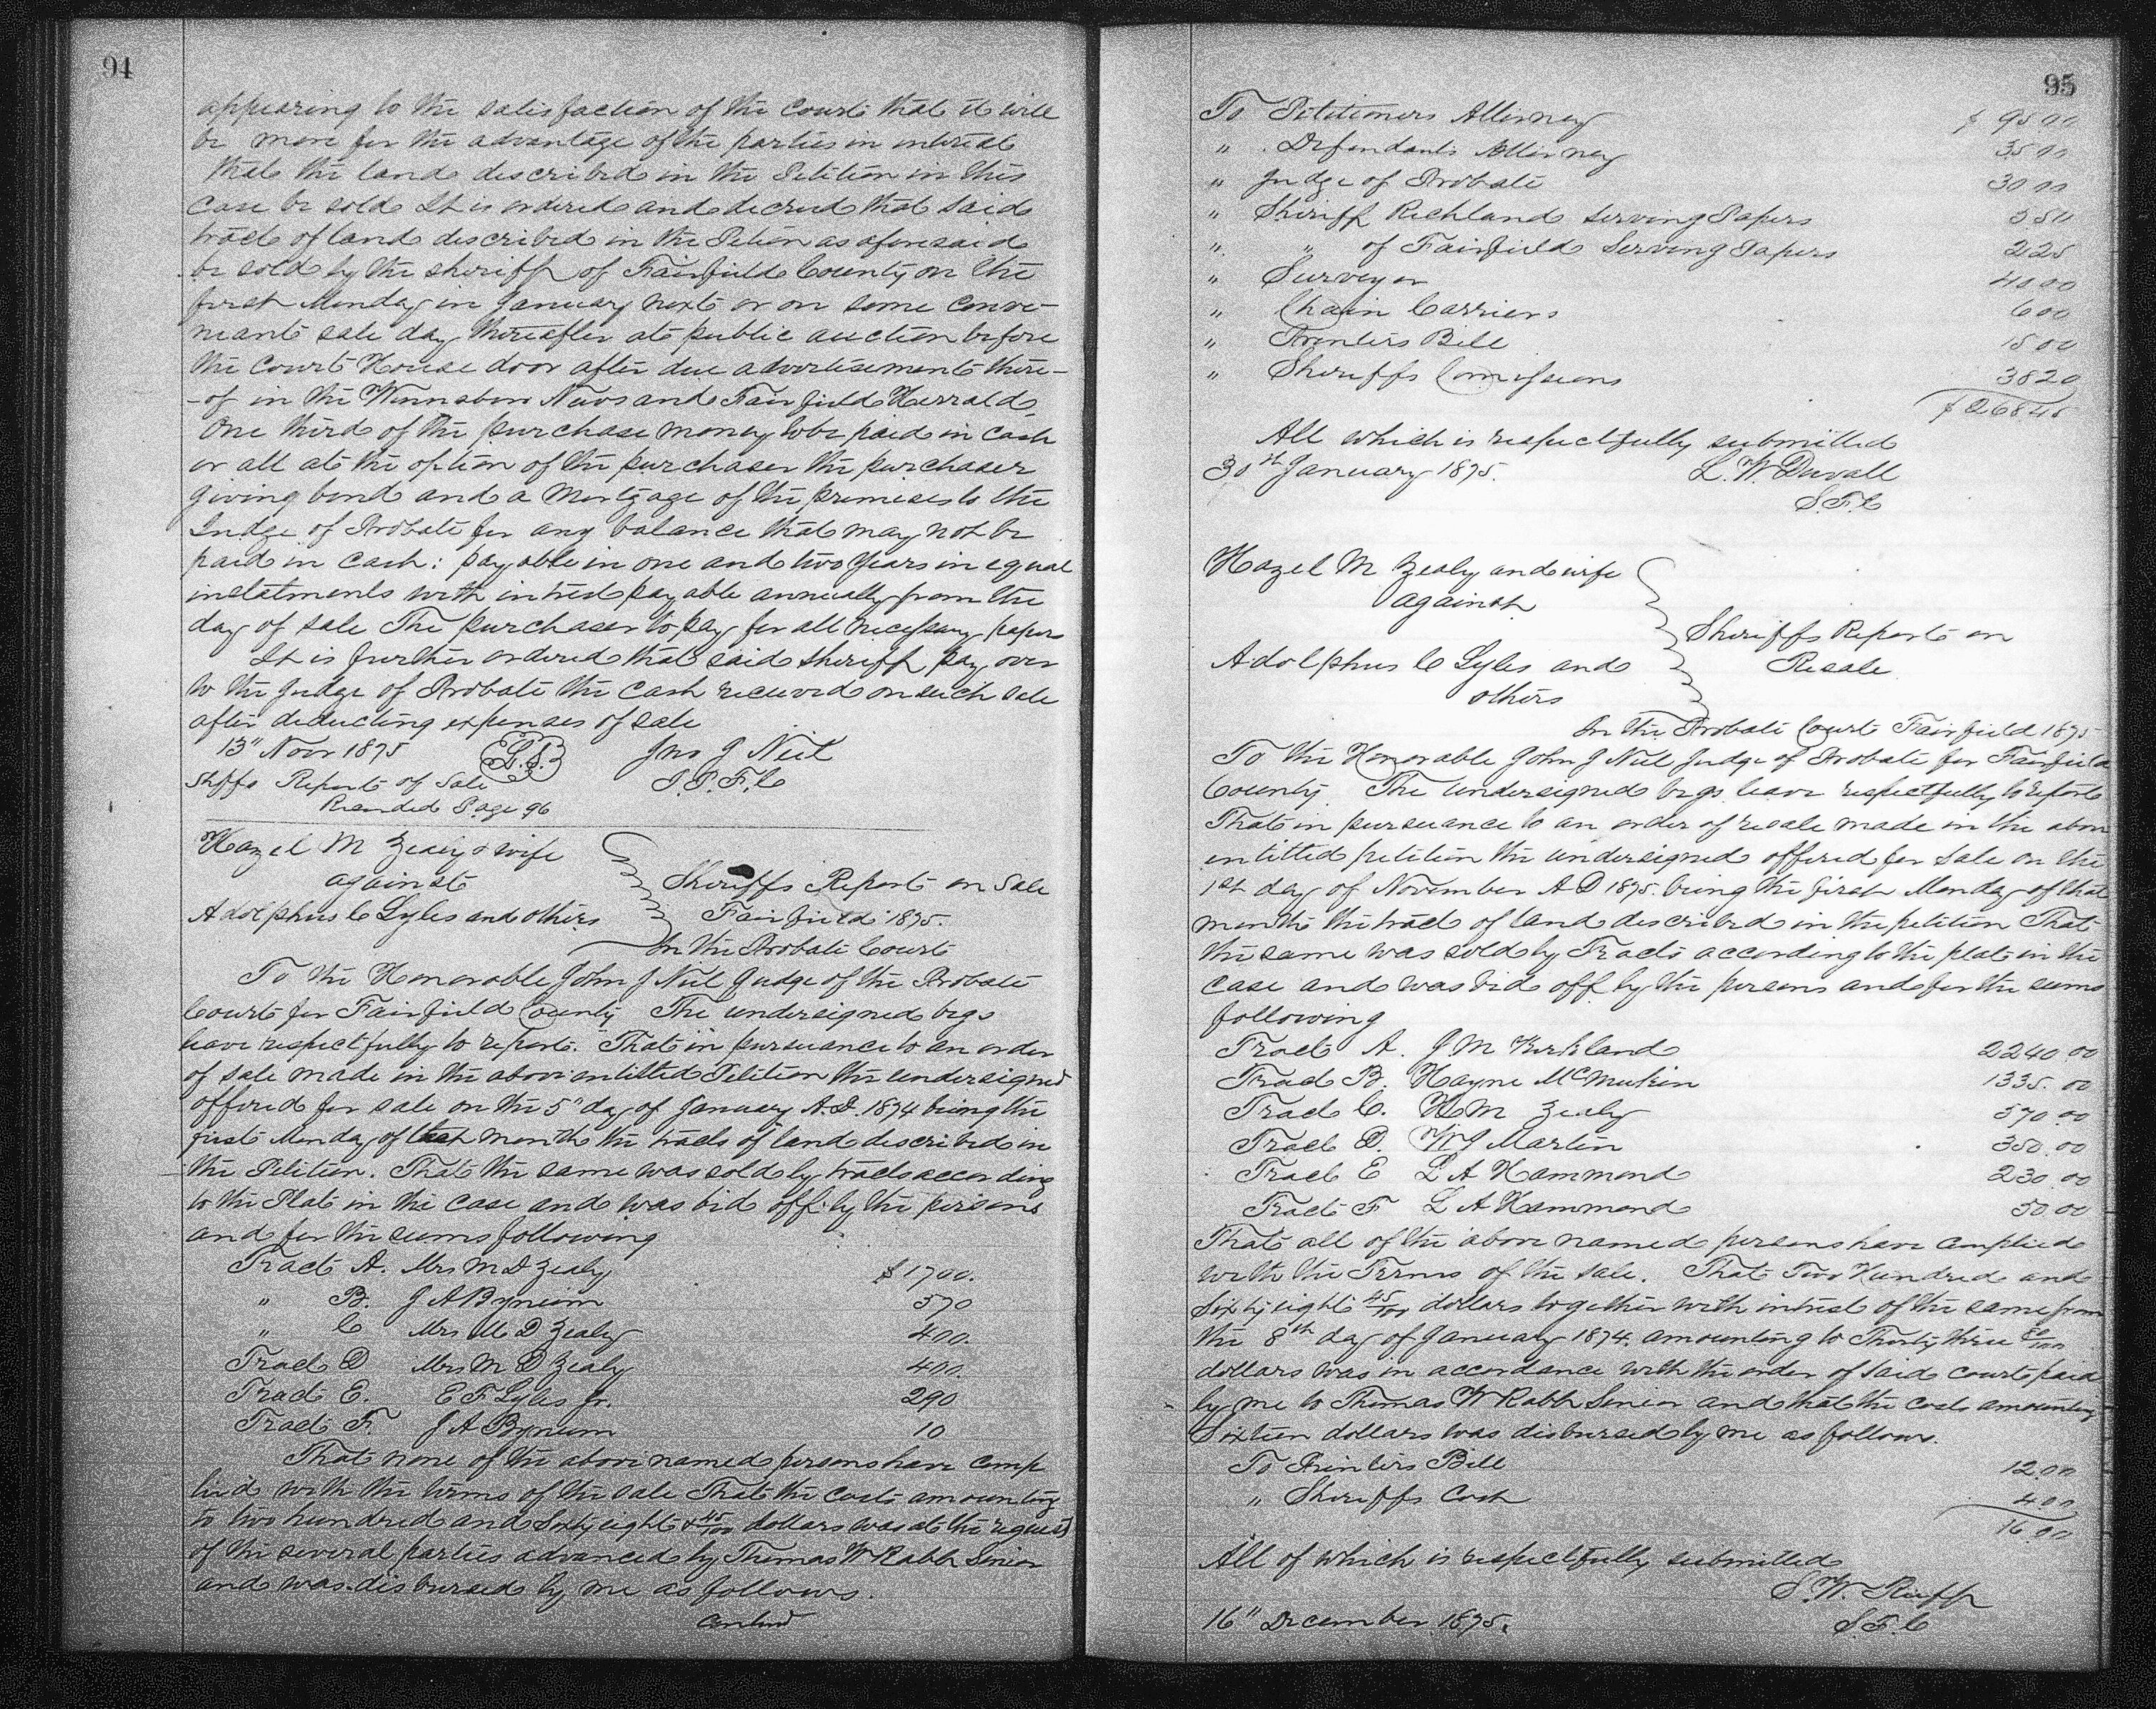 94
appearing to the satisfaction of the Court that it will
be more for the advantage of the parties in interest
that the land described in the Petition in this
Case be sold It is ordered and decreed that said
tract of land described in the Petion as aforesaid
be sold by the sheriff of Fairfield County on the
first Monday in January next or on some conve-
neant sale day thereafter at public auction before
the Court House door after due advertisement there-
-of in the Winnsboro News and Fairfield Herrald.
One third of the purchase money to be paid in Cash
or all at the option of the purchaser the purchaser
giving bond and a Mortgage of the premises to the
Judge of Probate for any balance that may not be
paid in Cash: payable in one and two years in equal
instatments with intrest payable annually from the
day of sale The purchaser to pay for all necessary papers
It is further ordered that said sheriff pay over
to the Judge of Probate the Cash received on such sale
after deducting expenses of sale
13" Novr 1875 L.S. Jno J Neil
J.P.F.C
Shffs Report of Sale
Recorded Page 96
Hazel M Zealy & wife
against
Adolphus C Lyles and others
Sheriffs Report on Sale
Fairfield 1875.
In the Probate Court
To the Honorable John J Neil Judge of the Probate
Court for Fairfield County The undersigned begs
leave respectfully to report. That in pursuance to an order
of sale made in the above entitled Petition the undersigned
offered for sale on the 5" day of January A.D. 1874 being the
first Monday of that month the tracts of land described in
the Petition. That the same was sold by tracts according
to the Plat in the case and was bid off by the persons
and for the sums following
Tract A. Mrs M D Zealy $1700.
" B. J A Bynum 570
" C Mrs M D Zealy 400.
Tract D Mrs M D Zealy 400.
Tract E. E F Lyles Jr. 290
Tract F. J A Bynum 10
That none of the above named persons have comp
lied with the terms of the sale That the costs amounting
to two hundred and Sixty eight & 45/100 dollars was at the request
of the several parties advanced by Thomas W Rabb Senior
and was disbursed by me as follows.
95
To Petitioners Attorney $ 95 00
" Defendants Attorney 35 00
" Judge of Probate 30 00
" Sheriff Richland serving Papers 3 50
" " of Fairfield Serving Papers 2 25
" Surveyor 40 00
" Chain Carriers 6 00
" Printers Bill 15 00
" Sheriffs Comissions 38 20
$ 268.45
All which is respectfully submitted
30th January 1875. L. W. Duvall
S.F.C
Hazel M Zealy and wife
against
Adolphus C Lyles and
others
Sheriffs Report on
Resale
In the Probate Court Fairfield 1875
To the Honorable John J Neil Judge of Probate for Fairfield
County. The undersigned begs leave respectfully to report
That in pursuance to an order of resale made in the above
entitled petition the undersigned offered for sale on the
1st day of November A D 1875. being the first Monday of that
month the tract of land described in the petition That
the same was sold by Tracts according to the plat in the
Case and was bid off by the persons and for the sums
following
Tract A. J M Kirkland 2240 00
Tract B. Hayne McMeekin 1335. 00
Tract C. H M Zealy 570.00
Tract D. W J Martin 350.00
Tract E L A Hammond 230.00
Tract F L A Hammond 50.00
That all of the above named persons have complied
with the Terms of the sale. That Two Hundred and
Sixty eight 45/100 dollars together with intrest of the same from
the 8th day of January 1874. amounting to Thirty three
dollars was in accordance with the order of said court paid
by me to Thomas W Rabb Senior and that the costs amounting
Sixteen dollars was disbursed by me as follows.
To Printers Bill 12.00
" Sheriffs Cost 4 00
16.00
All of which is respectfully submitted
S. W. Ruff
16" December 1875. S.F.C